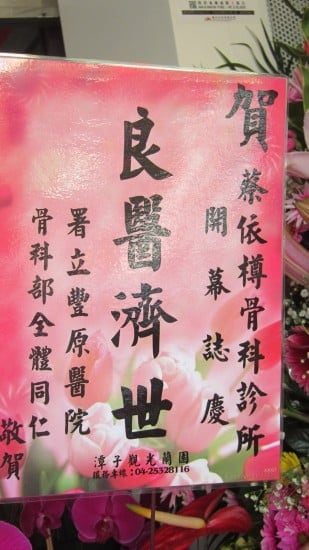 賀
蔡依樽骨科診所
開幕誌慶
良醫濟世
署立豐原醫院
骨科部全體同仁
敬賀
潭子觀光蘭園
服務專線：04-25328116